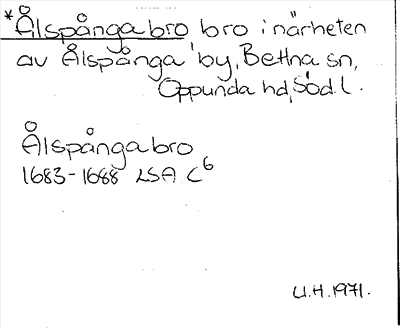 *Ålspånga bro bro i närheten
av Ålspånga by, Bettna sn,
Oppunda hd, Söd. l.
Ålspångabro
1683-1688 LSA C6
U.H. 1971.